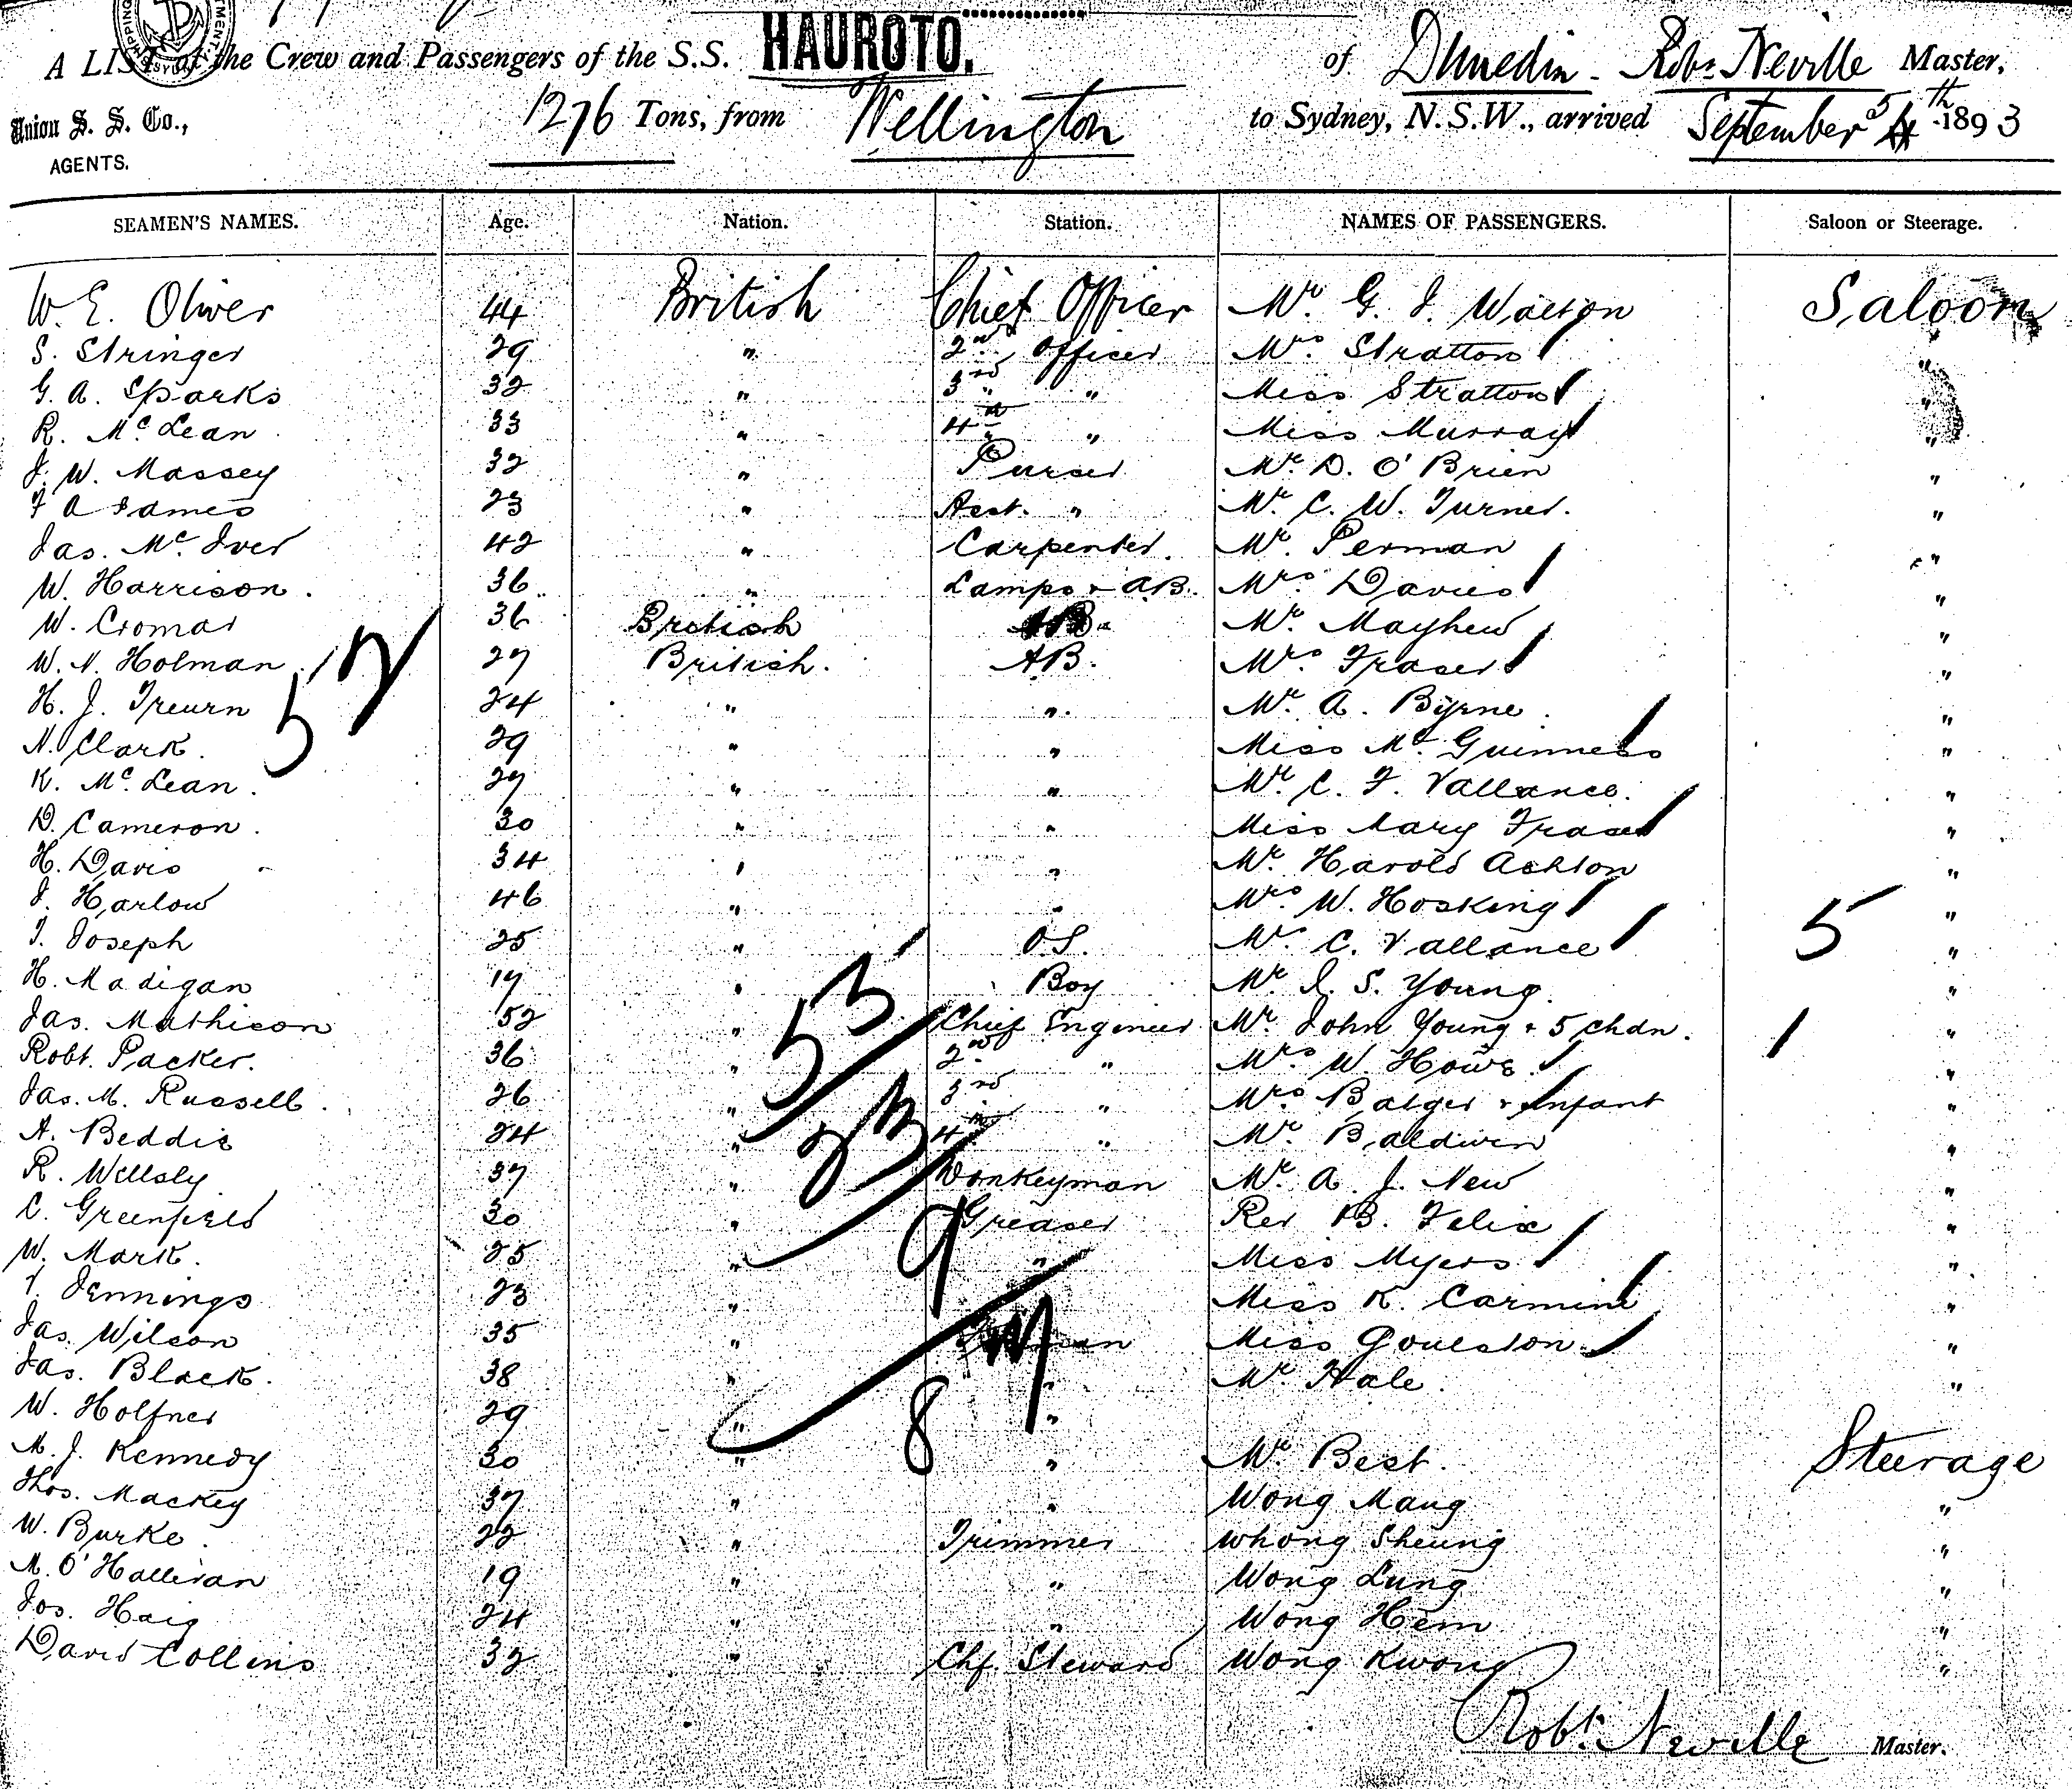 A LIST of the Crew and Passengers of the S.S. HAUROTO. of Dunedin - Robt. Neville Master,
Union S. S. Co., AGENTS.
1276 Tons, from Wellington to Sydney, N.S.W., arrived September 5th 1893
SEAMEN'S NAMES. Age. Nation. Station. NAMES OF PASSENGERS. Saloon or Steerage.
W. E. Oliver 44 British Chief Officer Mr. G. J. Walton Saloon
S. Stringer 29 " 2nd Officer Mrs. Stratton "
G. A. Sparks 32 " 3rd " Miss Stratton "
R. McLean 33 " 4th " Miss Murray "
J. W. Massey 32 " Purser Mr. D. O'Brien "
F A James 23 " Asst. " Mr. C. W. Turner. "
Jas. McIver 42 " Carpenter. Mr. Perman "
W. Harrison. 36 " Lamps & AB. Mrs Davies "
W. Cromar 36 British AB. Mr. Mayhew "
W. N. Holman. 27 British. AB. Mrs. Fraser "
H. J. Treurn 24 " " Mr. A. Byrne. "
N. Clark. 29 " " Miss McGuinness "
K. McLean. 27 " " Mr. C. F. Vallance. "
D. Cameron. 30 " " Miss Mary Fraser "
H. Davis 34 " " Mr. Harold Ashton "
J. Harlow 46 " " Mrs. W. Hosking "
T. Joseph 25 " O.S. C. Vallance "
H. Madigan 17 " Boy Mr. S. Young. "
Jas. Mathieson 52 " Chief Engineer Mr. John Young & 5 chdn. "
Robt. Packer. 36 " 2nd " Mrs W. Howe. "
Jas. M. Russell. 26 " 3rd " Mrs Balger & Infant "
A. Beddie 24 " 4th " Mr. Baldwin "
R. Willsly 37 " Donkeyman Mr. A. J. New "
C. Greenfield 30 " Greaser Rev B. Felix "
W. Mark. 25 " " Miss Myers "
Jennings 23 " Miss K. Carmini "
Jas. Wilson 35 " Miss Goulston "
Jas. Black. 38 " " Mr Hale. "
W. Holfner 29 " "
M. J. Kennedy 30 " " Mr. Best. Steerage
Thos. Mackey 37 " " Wong Mang "
W. Burke. 22 " Trimmer Whong Sheung "
M. O'Halliran 19 " " Wong Lung "
Jos. Haig 24 " " Wong Hem "
David Collins 32 " Chf. Steward Wong Kwong "
Robt. Neville Master.